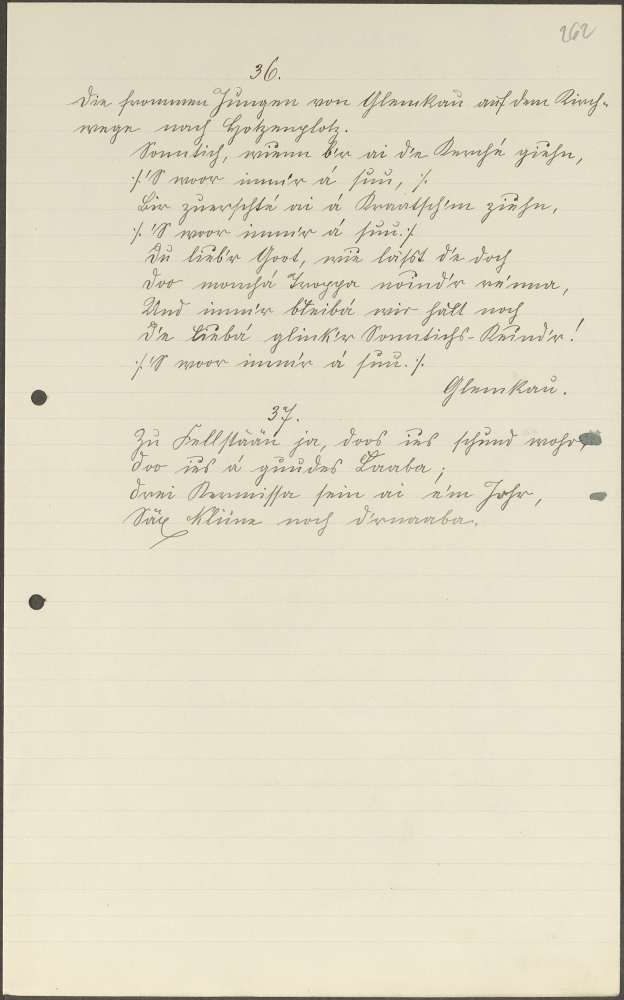 262
36.
Die frommen Jungen von Glemkau auf dem Kirch-
wege nach Hotzenplotz.
Sonntich, wienn b'r ai d'e Kerché giehn,
:/: 'S woor imm'r á suu, :/:
Bir zuerschté ai á Kraatsch'm ziehn,
:/: 'S woor imm'r á suu. :/:
Du lieb'r Goot, wie lässt d'e doch
Doo monchá Troppa nöind'r rénna,
Und imm'r bleibá wir halt noch
D'e liebá glink'r Sonntichs-Keind'r!
:/: 'S woor imm'r á suu. :/:
Glemkau.
37.
Zu Fellstään ja, doos ies schund wohr,
Doo ies á guudes Laaba;
Drei Kermissa sein ai é'm Johr,
Säx kliine noch d'rnaaba.